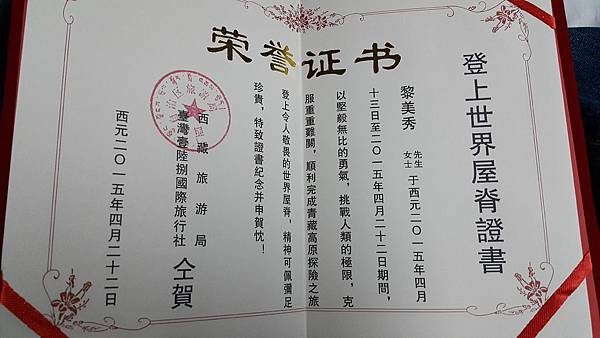 荣誉证书
登上世界屋脊證書
黎美秀 先生女士 于西元二0一五年四月
十三日至二0一五年四月二十二日期間，
以堅毅無比的勇氣，挑戰人類的極限，克
服重重難關，順利完成青藏高原探險之旅
登上令人敬畏的世界屋脊，精神可佩彌足
珍貴，特致證書紀念并申賀忱！
西藏旅游局
臺灣壹陸捌國際旅行社 仝賀
西元二0一五年四月二十二日